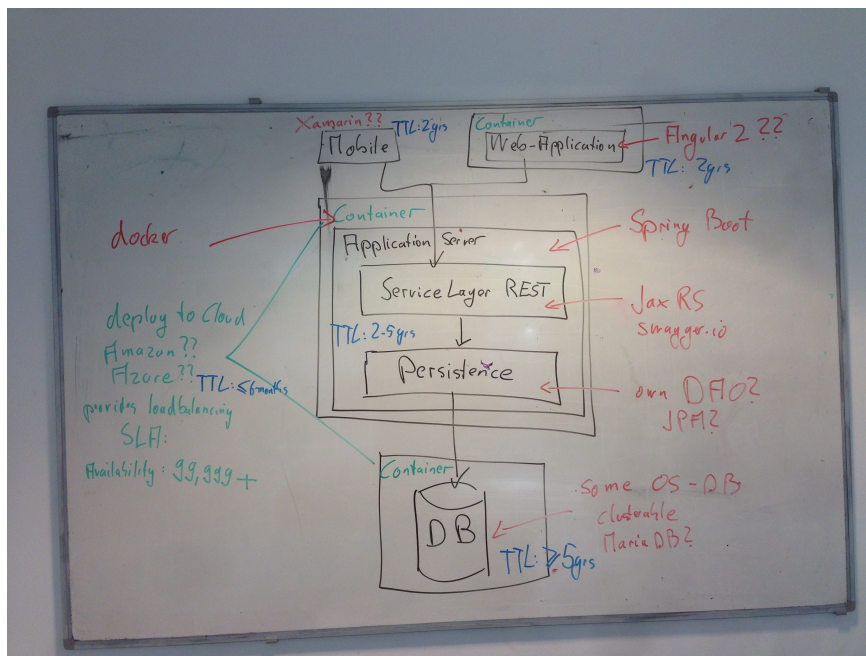 Xamarin??
Mobile
TTL: 2yrs
Container
Web-Application
Angular 2 ??
TTL: 2yrs
docker
Container
Application Server
Spring Boot
Service Layer REST
Jax RS
swagger.io
TTL: 2-5yrs
Persistence
own DAO?
JPA?
deploy to Cloud
Amazon??
Azure??
TTL: ≤6months
provides loadbalancing
SLA:
Availability: 99,999+
Container
DB
TTL: ≥5yrs
Some OS-DB
clusterable
MariaDB?